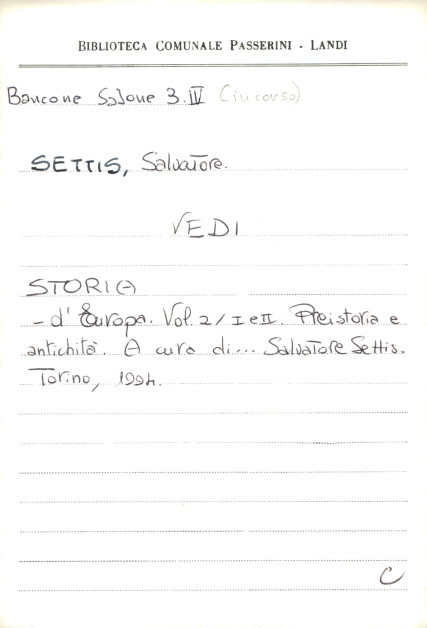 BIBLIOTECA COMUNALE PASSERINI - LANDI
Bancone Salone 3.IV (in corso)
SETTIS, Salvatore.
VEDI
STORIA
- d'Europa. Vol. 2/I e II. Preistoria e
antichità. A cura di... Salvatore Settis.
Torino, 1994.
C